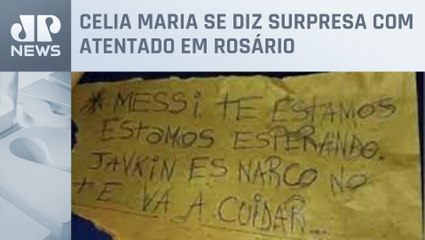 JP
NEWS
CELIA MARIA SE DIZ SURPRESA COM
ATENTADO EM ROSÁRIO
*MESSI TE ESTAMOS
ESTAMOS ESPERANDO.
JAVKIN ES NARCO NO
TE VA A CUIDAR...